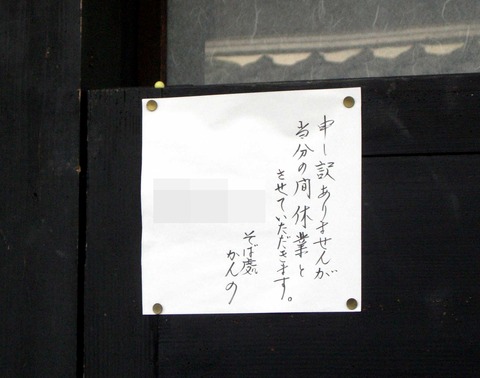 申し訳ありませんが
当分の間休業と
させていただきます。
そば處
かんの